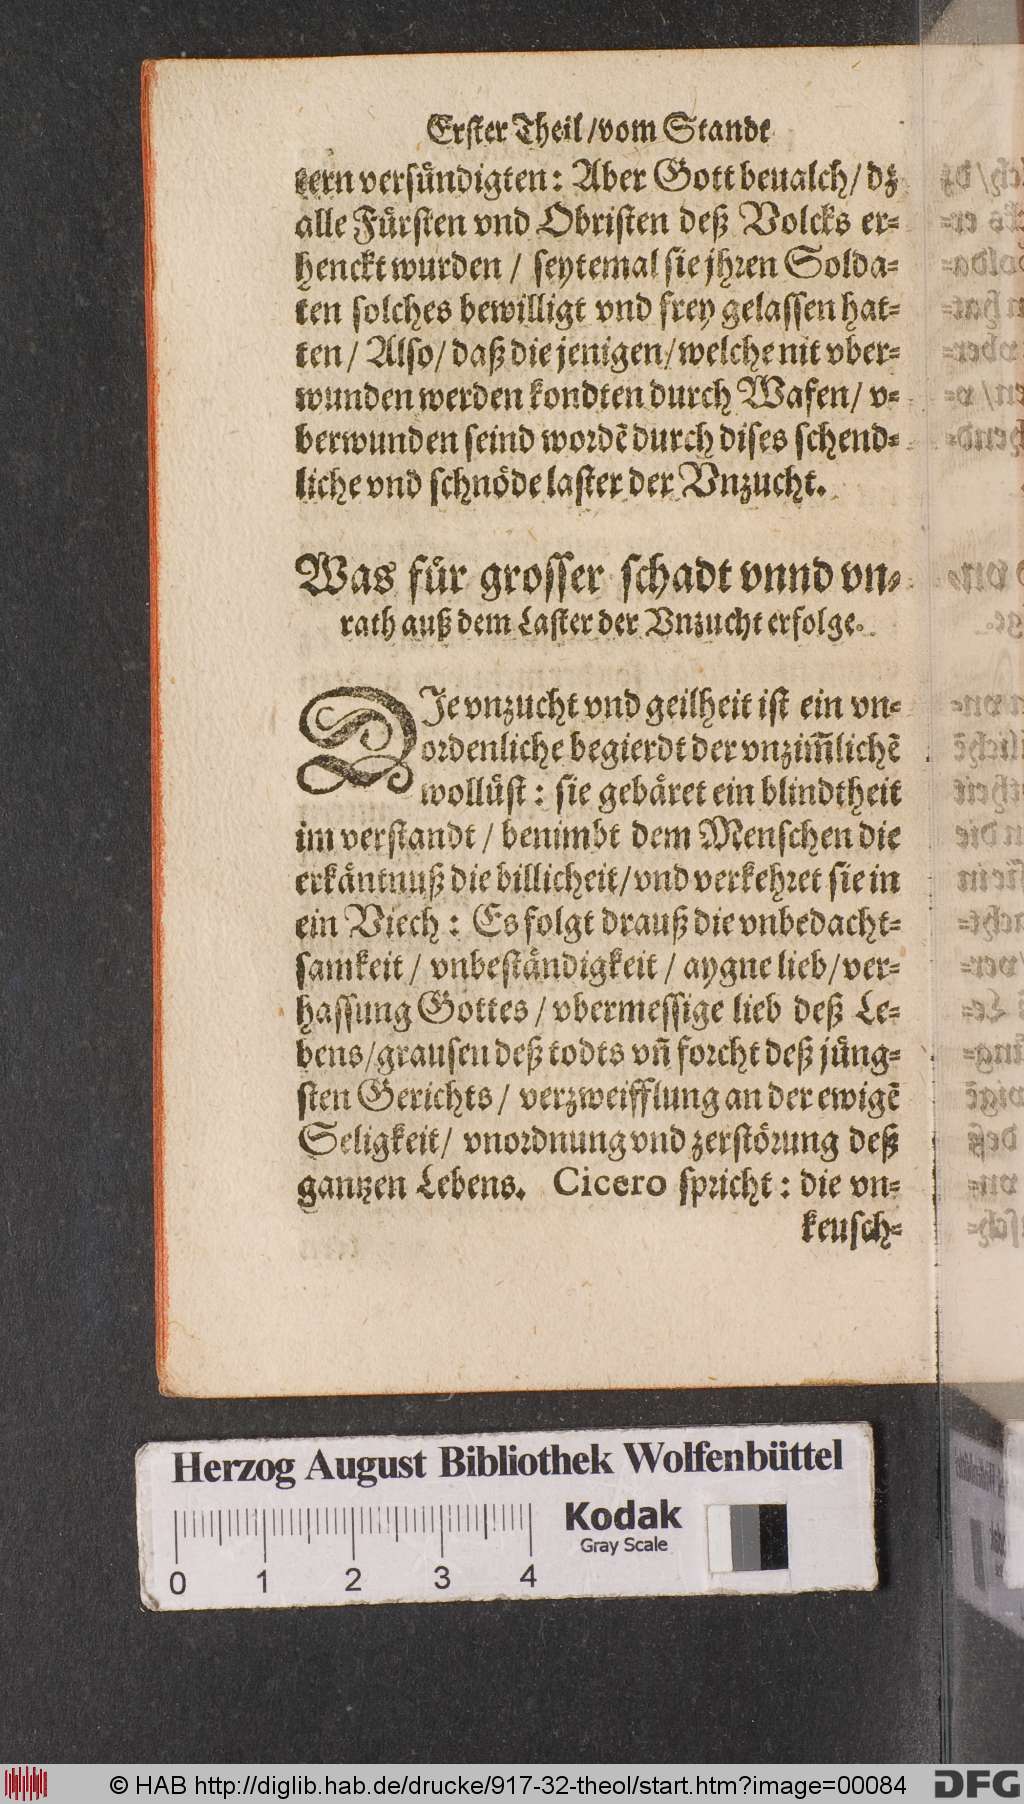 Erster Theil / vom Stande
tern versündigten: Aber Gott beualch / dz
alle Fürsten vnd Obristen deß Volcks er=
henckt wurden / seytemal sie jhren Solda=
ten solches bewilligt vnd frey gelassen hat=
ten / Also / daß die jenigen / welche nit vber=
wunden werden kondten durch Wafen / v=
berwunden seind wordẽ durch dises schend=
liche vnd schnöde laster der Vnzucht.
Was für grosser schadt vnnd vn=
rath auß dem Laster der Vnzucht erfolge.
DIe vnzucht vnd geilheit ist ein vn=
ordenliche begierdt der vnzim̃lichẽ
wollüst : sie gebäret ein blindtheit
im verstandt / benimbt dem Menschen die
erkäntnuß die billicheit / vnd verkehret sie in
ein Viech : Es folgt drauß die vnbedacht=
samkeit / vnbeständigkeit / aygne lieb / ver=
hassung Gottes / vbermessige lieb deß Le=
bens / grausen deß todts vñ forcht deß jüng=
sten Gerichts / verzweifflung an der ewigẽ
Seligkeit / vnordnung vnd zerstörung deß
gantzen Lebens. Cicero spricht : die vn=
keusch=
Herzog August Bibliothek Wolfenbüttel
Kodak
Gray Scale
0 1 2 3 4
© HAB http://diglib.hab.de/drucke/917-32-theol/start.htm?image=00084
DFG